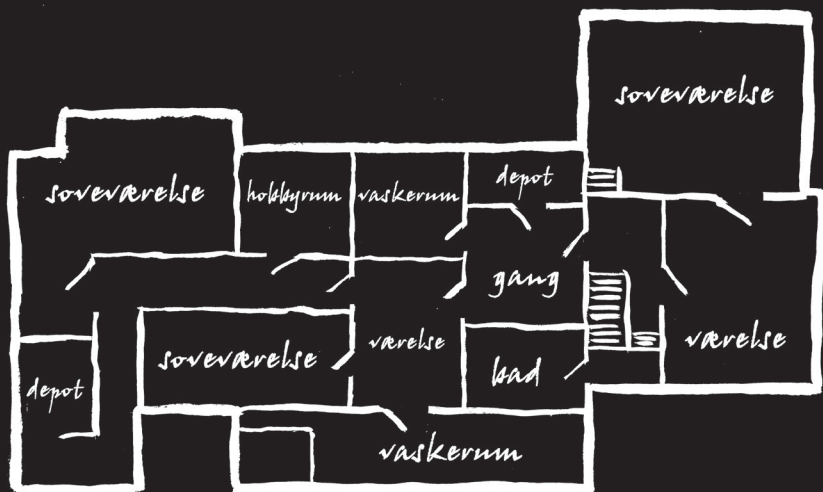 soveværelse
soveværelse
hobbyrum
vaskerum
depot
gang
værelse
soveværelse
bad
værelse
depot
vaskerum